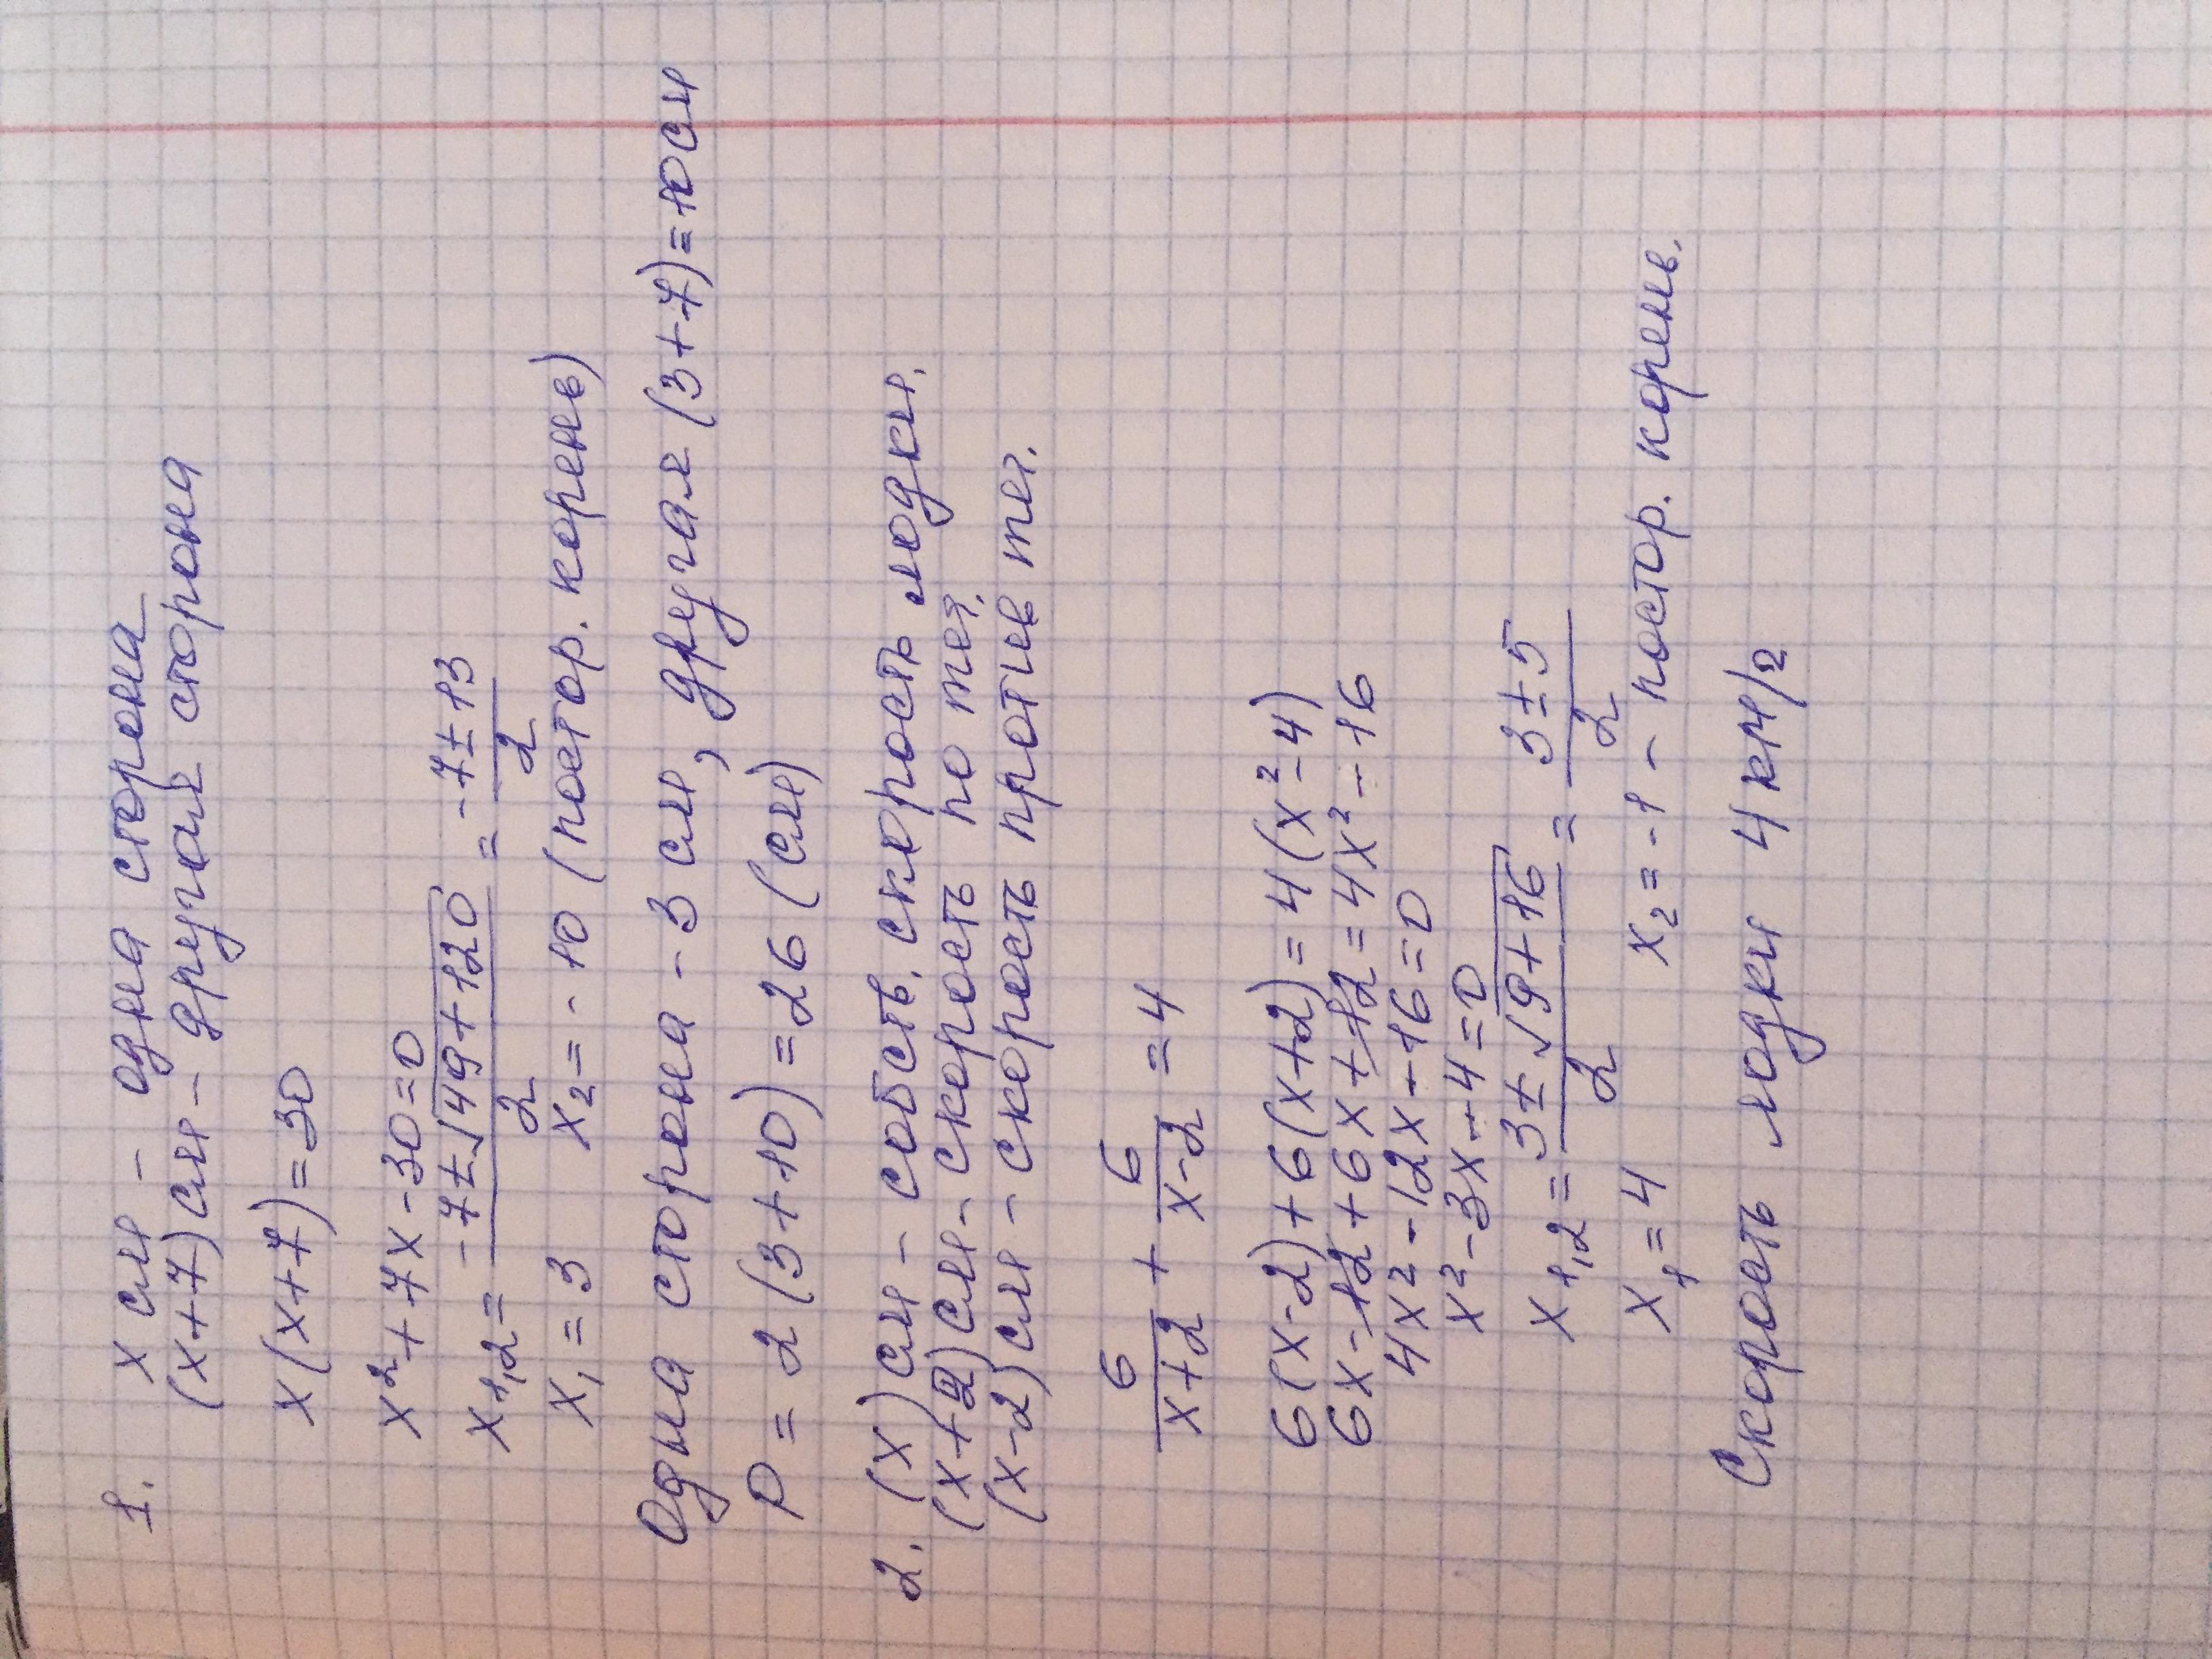 1. x см - одна сторона
(x+7) см - другая сторона
x(x+7)=30
x²+7x-30=0
x₁,₂ = (-7±√(49+120))/2 = (-7±13)/2
x₁=3 x₂=-10 (постор. корень)
Одна сторона - 3 см, другая (3+7)=10 см
P = 2(3+10)=26 (см)
2. (x) см - собств. скорость лодки.
(x+2) см - скорость по теч.
(x-2) см - скорость против теч.
6/(x+2) + 6/(x-2) = 4
6(x-2)+6(x+2)=4(x²-4)
6x-12+6x+12=4x²-16
4x²-12x-16=0
x²-3x-4=0
x₁,₂ = (3±√(9+16))/2 = (3±5)/2
x₁=4 x₂=-1 - постор. корень.
Скорость лодки 4 км/г